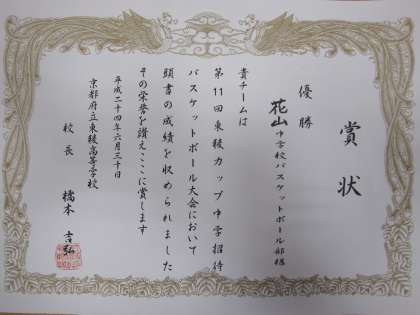 賞状
優勝
花山中学校バスケットボール部様
貴チームは
第11回東稜カップ中学招待
バスケットボール大会において
頭書の成績を収められました
その栄誉を讃えここに賞します
平成二十四年六月三十日
京都府立東稜高等学校
校長 橋本吉弘